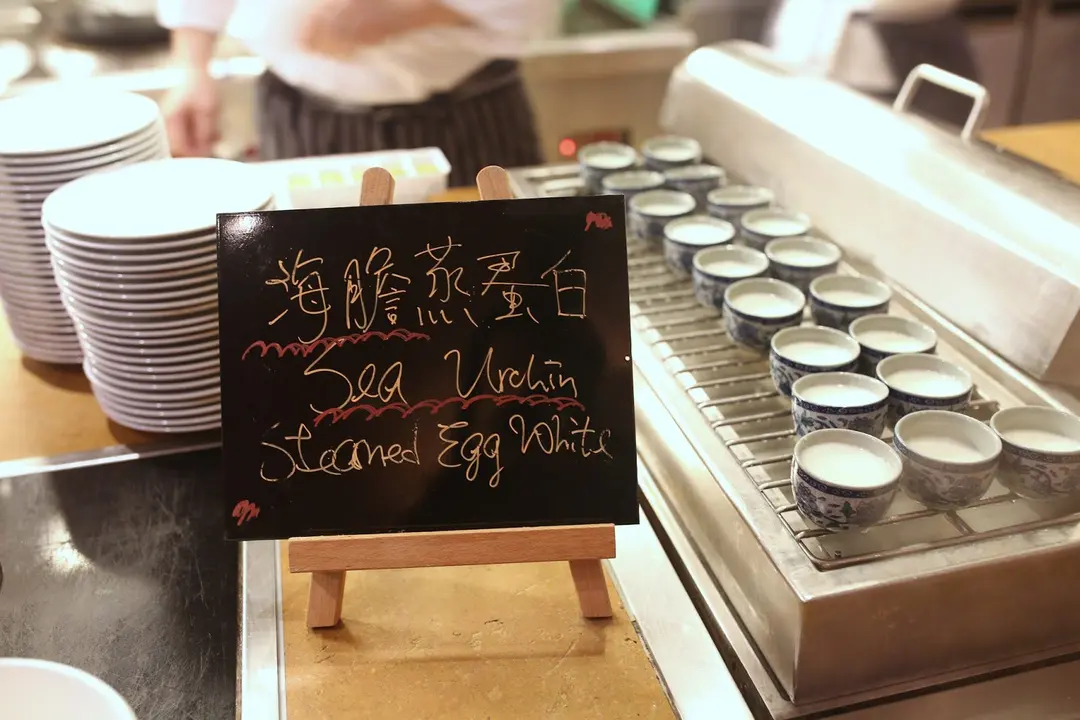 海膽蒸蛋白
Sea Urchin
Steamed Egg White